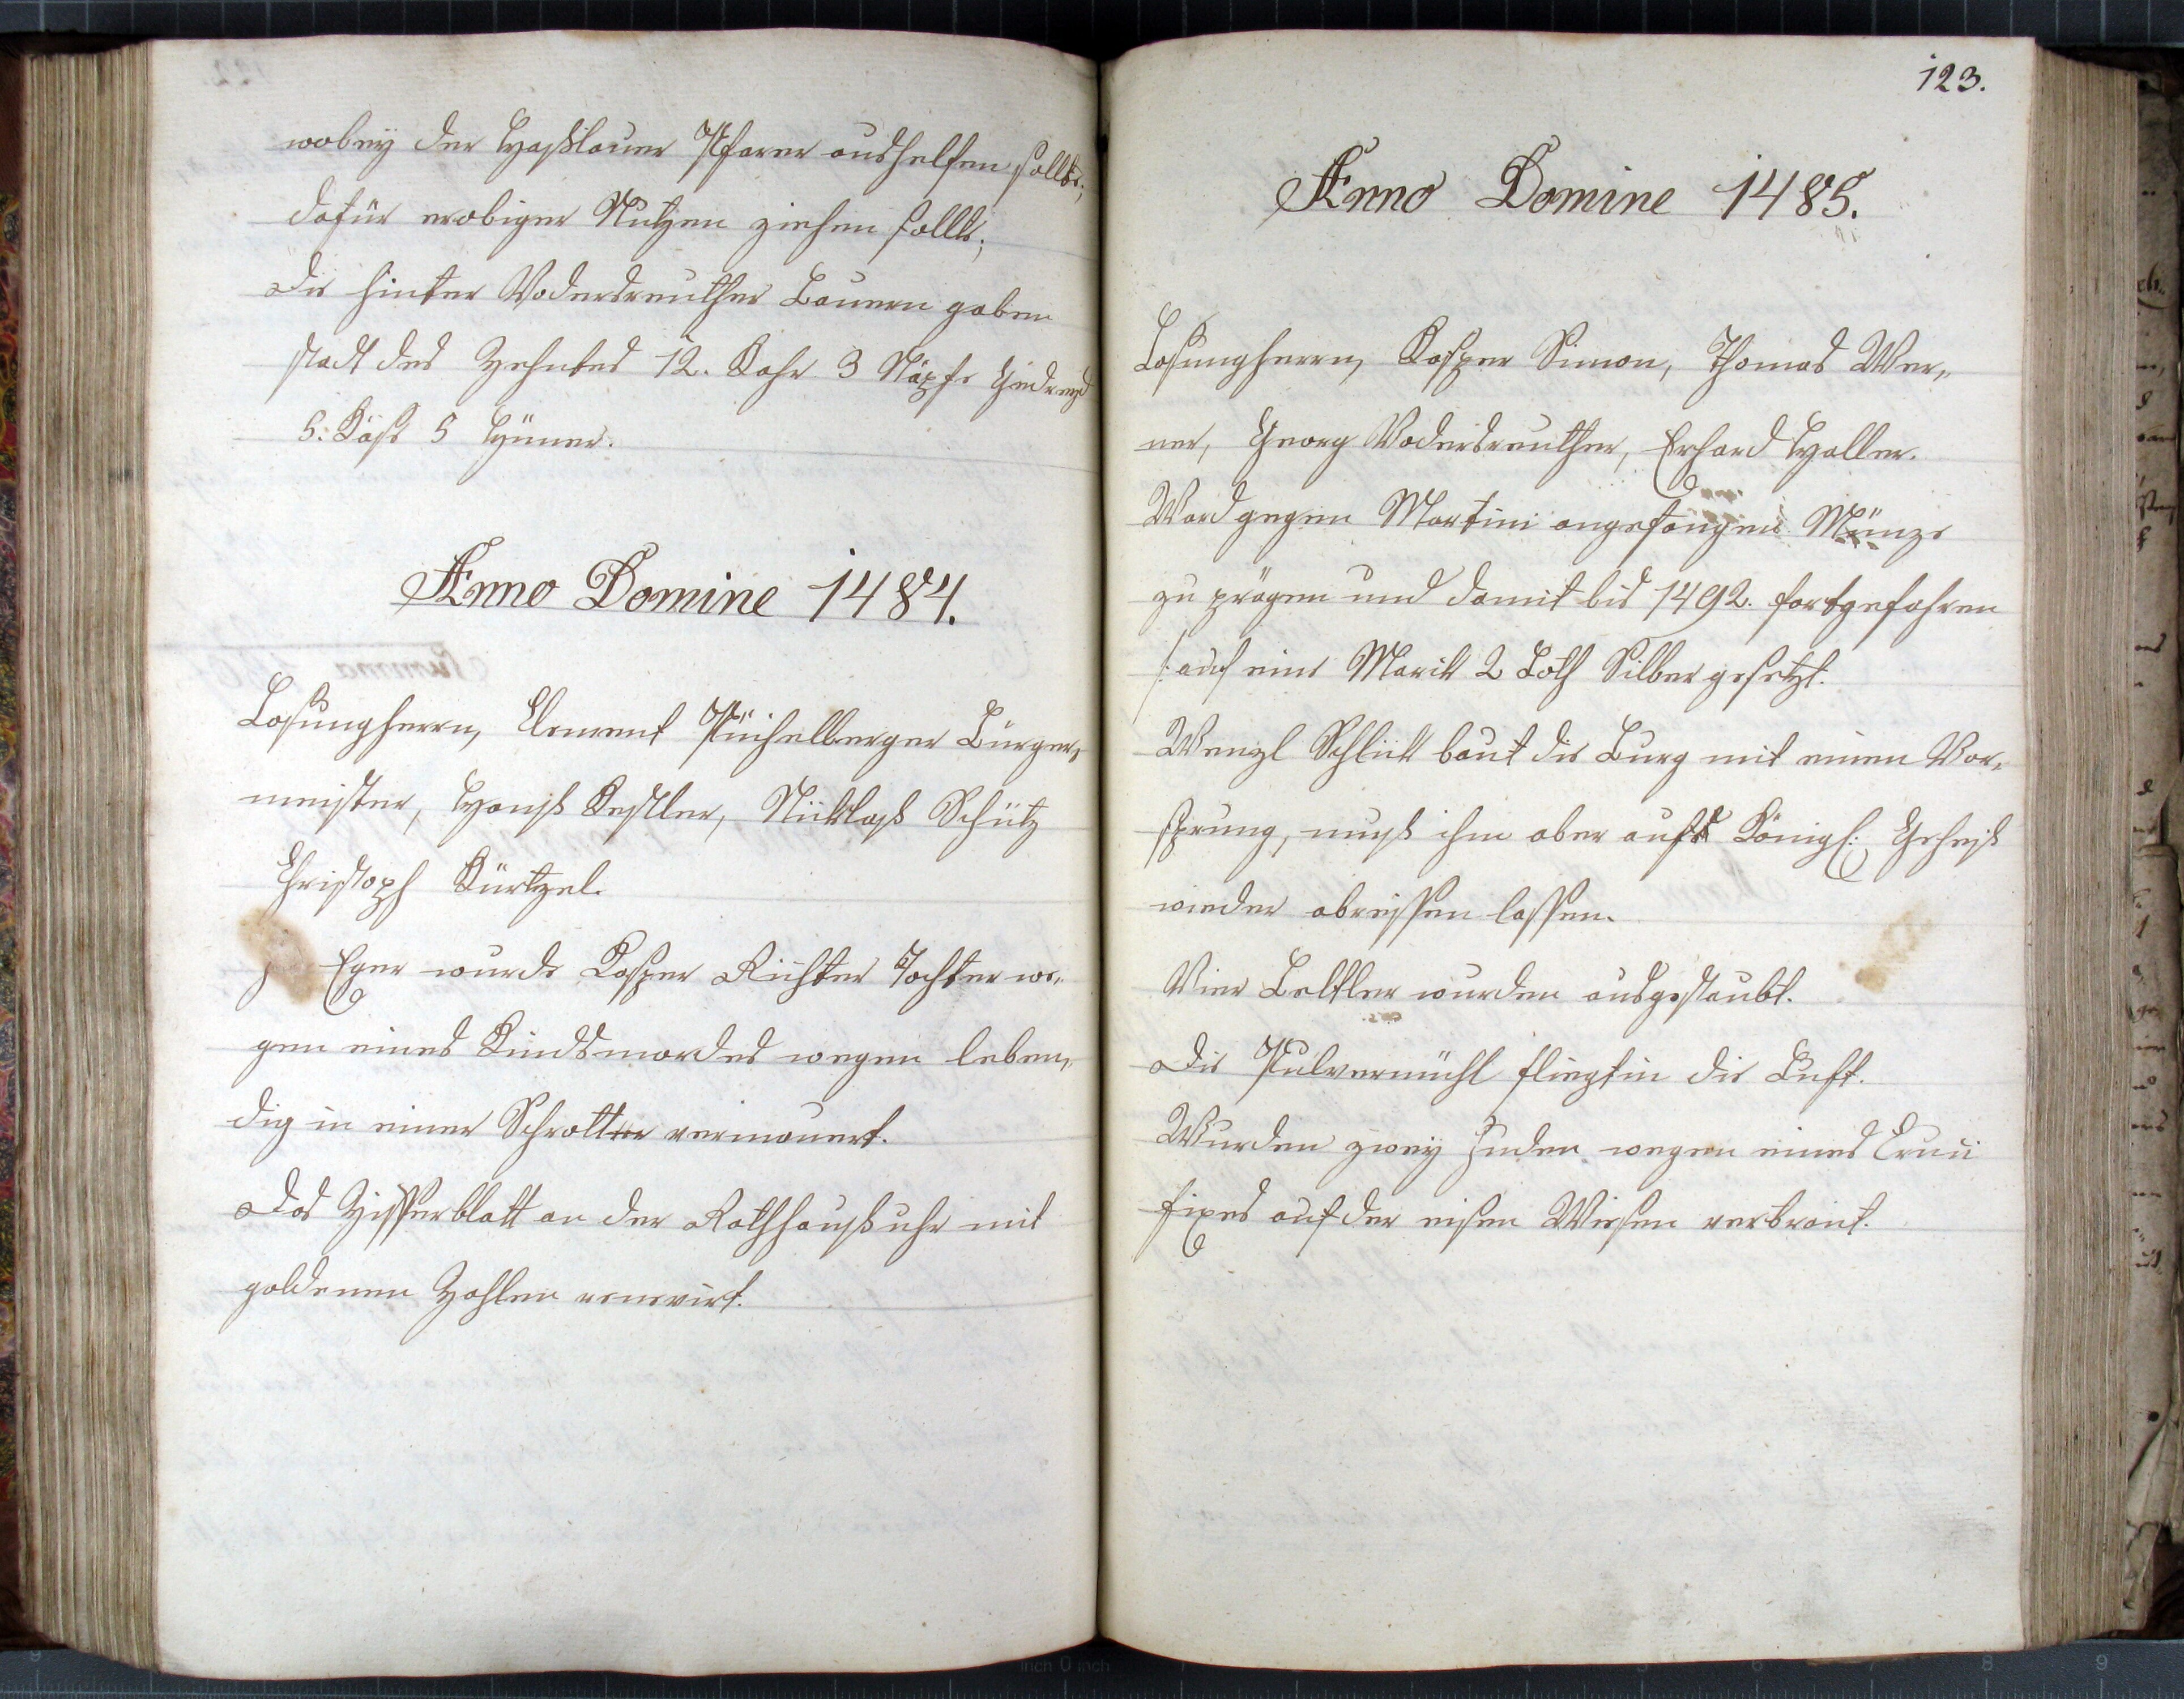 wobey der Haßlauer Pfarer aushelfen sollte,
dafür erobiger Nutzen ziehen sollte;
die hinter Vodersreuther Bauern gaben
stadt des Zehntes 12. Kahr 3 Näpfe Gedreyd
5. Käß 5 Hüner.
Anno Domine 1484.
Losungherrn, Clement Püchelberger Bürger„
meister, Hanß Kestler, Nicklaß Schütz
Christoph Kürtzel.
Eger wurde Kasper Richter Tochter we„
gen eines Kindsmordes wegen leben„
dig in einer Schrotter vermauert.
Das Zifferblatt an der Rathhaußuhr mit
goldenen Zahlen renovirt.
123.
Anno Domine 1485.
Losungherrn, Kasper Simon, Thomas Wer„
ner, Georg Vodersreuther, Erhard Haller.
Ward gegen Martini angefangen Münze
zu prägen und damit bis 1492. fortgefahren
/: auf eine Marck 2 Loth Silber gesetzt.
Wenzl Schlick baut die Burg mit einen Vor„
sprung, muß ihn aber aufs Königl: Geheiß
wieder abreissen lassen.
Vier Bettler wurden ausgestaubt.
Die Pulvermühl fliegt in die Luft.
Wurden zwey Juden wegen eines Cruci
fixes auf der Wiesen verbrant.